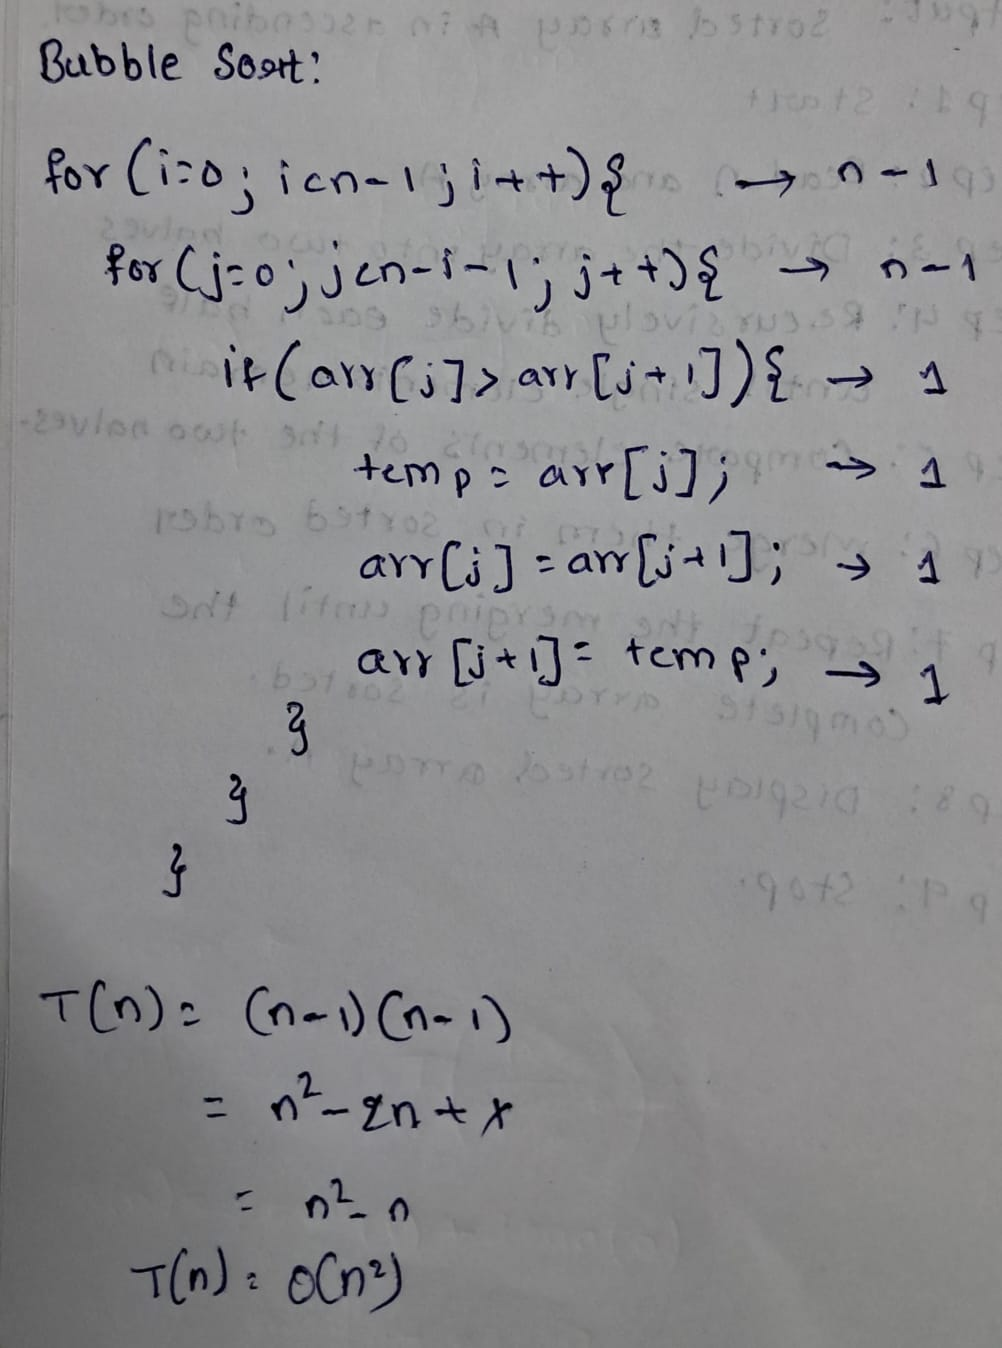 Bubble Sort:
for (i=0; i<n-1; i++){ → n-1
for (j=0; j<n-i-1; j++){ → n-1
if (arr[j]> arr[j+1]){ → 1
temp = arr[j]; → 1
arr[j] = arr[j+1]; → 1
arr[j+1] = temp; → 1
}
}
}
T(n) = (n-1)(n-1)
= n²-2n+x
= n²-n
T(n) = O(n²)